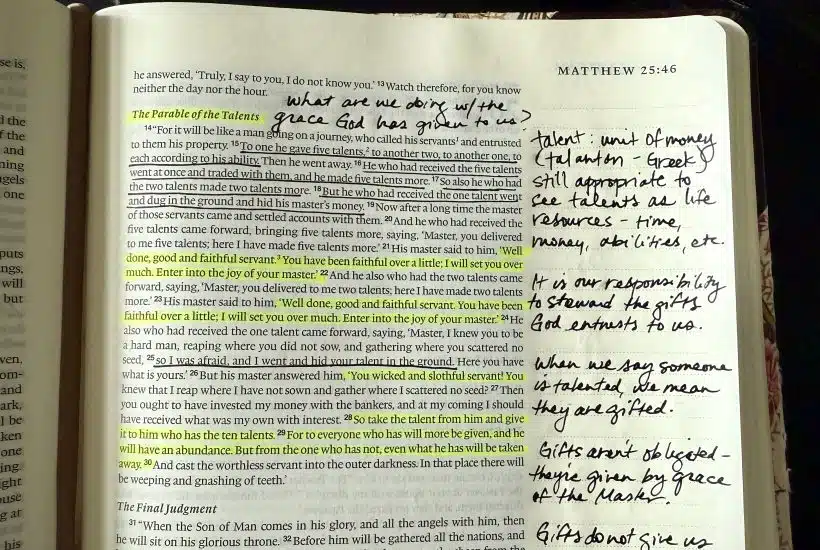 se is,
d the
f the
and
ning
ngels
one
puts
ngs,
will
but
ven,
om-
and
ark,
l be
ken
one
ing
ght
ouse
g at
his
MATTHEW 25:46
he answered, ‘Truly, I say to you, I do not know you.’ 13 Watch therefore, for you know
neither the day nor the hour.
what are we doing w/ the
grace God has given to us?
The Parable of the Talents
14 “For it will be like a man going on a journey, who called his servants¹ and entrusted
to them his property. 15 To one he gave five talents,² to another two, to another one, to
each according to his ability. Then he went away. 16 He who had received the five talents
went at once and traded with them, and he made five talents more. 17 So also he who had
the two talents made two talents more. 18 But he who had received the one talent went
and dug in the ground and hid his master’s money. 19 Now after a long time the master
of those servants came and settled accounts with them. 20 And he who had received the
five talents came forward, bringing five talents more, saying, ‘Master, you delivered
to me five talents; here I have made five talents more.’ 21 His master said to him, ‘Well
done, good and faithful servant.³ You have been faithful over a little; I will set you over
much. Enter into the joy of your master.’ 22 And he also who had the two talents came
forward, saying, ‘Master, you delivered to me two talents; here I have made two talents
more.’ 23 His master said to him, ‘Well done, good and faithful servant. You have been
faithful over a little; I will set you over much. Enter into the joy of your master.’ 24 He
also who had received the one talent came forward, saying, ‘Master, I knew you to be
a hard man, reaping where you did not sow, and gathering where you scattered no
seed, 25 so I was afraid, and I went and hid your talent in the ground. Here you have
what is yours.’ 26 But his master answered him, ‘You wicked and slothful servant! You
knew that I reap where I have not sown and gather where I scattered no seed? 27 Then
you ought to have invested my money with the bankers, and at my coming I should
have received what was my own with interest. 28 So take the talent from him and give
it to him who has the ten talents. 29 For to everyone who has will more be given, and he
will have an abundance. But from the one who has not, even what he has will be taken
away. 30 And cast the worthless servant into the outer darkness. In that place there will
be weeping and gnashing of teeth.’
The Final Judgment
31 “When the Son of Man comes in his glory, and all the angels with him, then
he will sit on his glorious throne. 32 Before him will be gathered all the nations, and
talent: unit of money
(talanton - Greek)
still appropriate to
see talents as life
resources - time,
money, abilities, etc.
It is our responsibility
to steward the gifts
God entrusts to us.
When we say someone
is talented, we mean
they are gifted.
Gifts aren't obligated -
they're given by grace
of the Master.
Gifts do not give us